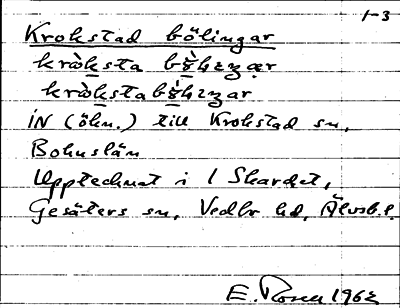 1-3
Krokstad bölingar
IN (öbn.) till Krokstad sn,
Bohuslän
Upptecknat i 1 Skardet,
Gesäters sn, Vedbo hd, Älvsb.l.
E. Rosell 1962